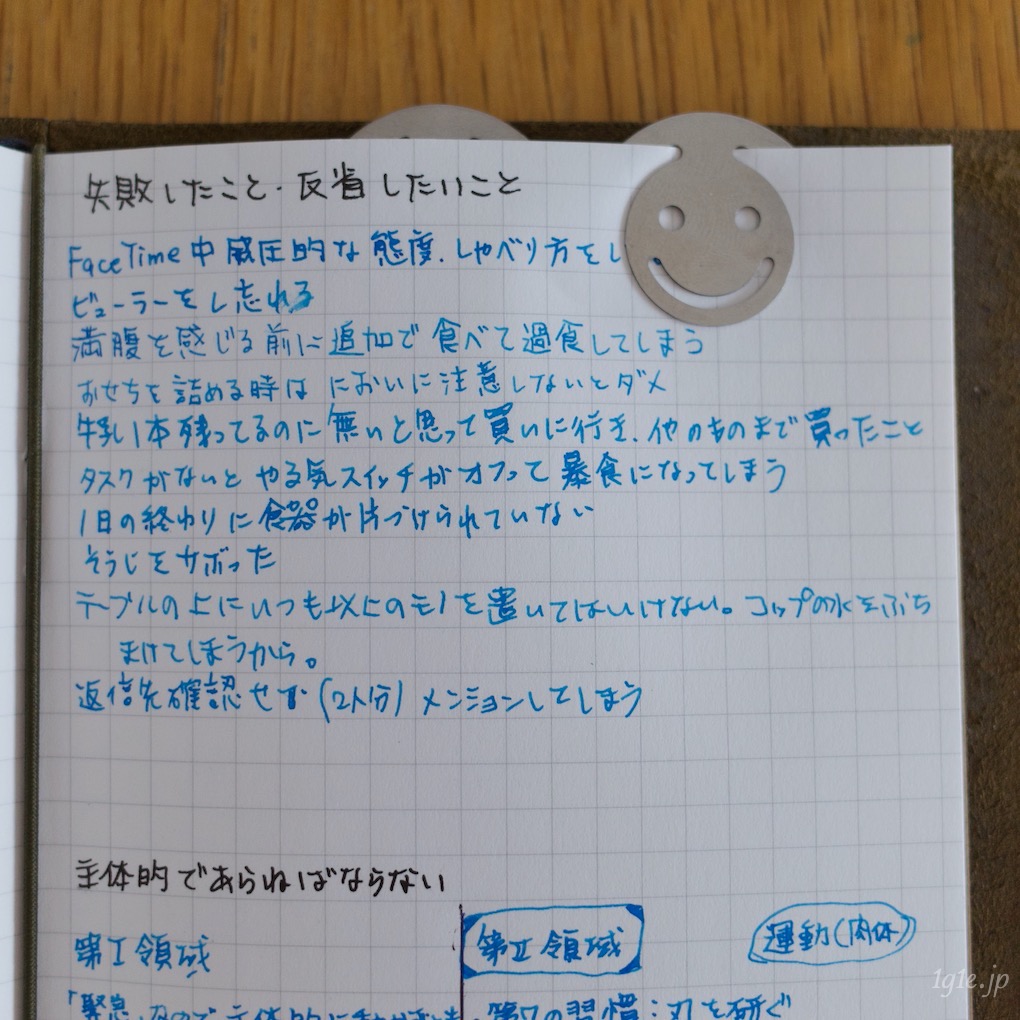 失敗したこと・反省したいこと
FaceTime中威圧的な態度、しゃべり方をし
ビューラーをし忘れる
満腹を感じる前に追加で食べて過食してしまう
おせちを詰める時はにおいに注意しないとダメ
牛乳1本残ってるのに無いと思って買いに行き、他のものまで買ったこと
タスクがないとやる気スイッチがオフって暴食になってしまう
1日の終わりに食器が片づけられていない
そうじをサボった
テーブルの上にいつも以上のモノを置いてはいけない。コップの水をぶち
まけてしまうから。
返信先確認せず(2人分)メンションしてしまう
主体的であらねばならない
第I領域
第II領域
運動(肉体)
「緊急」なので主体的に
第7の習慣:刃を研ぐ
1g1e.jp